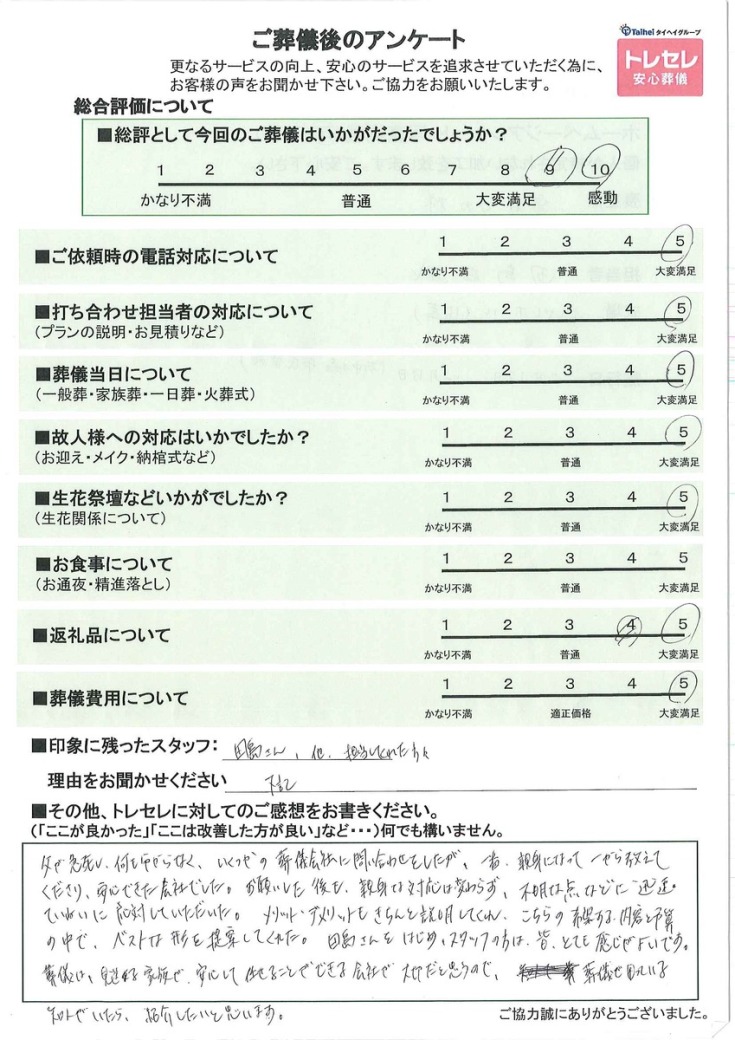 ご葬儀後のアンケート
Taihei タイヘイグループ
トレセレ
安心葬儀
更なるサービスの向上、安心のサービスを追求させていただく為に、
お客様の声をお聞かせ下さい。ご協力をお願いいたします。
総合評価について
■総評として今回のご葬儀はいかがだったでしょうか？
1 2 3 4 5 6 7 8 9 10
かなり不満 普通 大変満足 感動
■ご依頼時の電話対応について
1 2 3 4 5
かなり不満 普通 大変満足
■打ち合わせ担当者の対応について
(プランの説明・お見積りなど)
1 2 3 4 5
かなり不満 普通 大変満足
■葬儀当日について
(一般葬・家族葬・一日葬・火葬式)
1 2 3 4 5
かなり不満 普通 大変満足
■故人様への対応はいかでしたか？
(お迎え・メイク・納棺式など)
1 2 3 4 5
かなり不満 普通 大変満足
■生花祭壇などいかがでしたか？
(生花関係について)
1 2 3 4 5
かなり不満 普通 大変満足
■お食事について
(お通夜・精進落とし)
1 2 3 4 5
かなり不満 普通 大変満足
■返礼品について
1 2 3 4 5
かなり不満 普通 大変満足
■葬儀費用について
1 2 3 4 5
かなり不満 適正価格 大変満足
■印象に残ったスタッフ： 田島さん、他、担当してくれた方々
理由をお聞かせください 下記
■その他、トレセレに対してのご感想をお書きください。
(「ここが良かった」「ここは改善した方が良い」など・・・)何でも構いません。
父が急死し、何も分からなく、いくつかの葬儀会社に問い合わせをしたが、一番、親身になって一から教えて
くださり、安心できた会社でした。お願いした後も、親身な対応は変わらず、不明な点などに迅速
ていねいに応対していただいた。メリット・デメリットもきちんと説明してくれ、こちらの希望する内容と予算
の中で、ベストな形を提案してくれた。田島さんをはじめ、スタッフの方は、皆、とても感じがよいです。
葬儀は、家族が、安心して任せることができる会社が大切だと思うので、葬儀で困っている
知人がいたら、紹介したいと思います。
ご協力誠にありがとうございました。